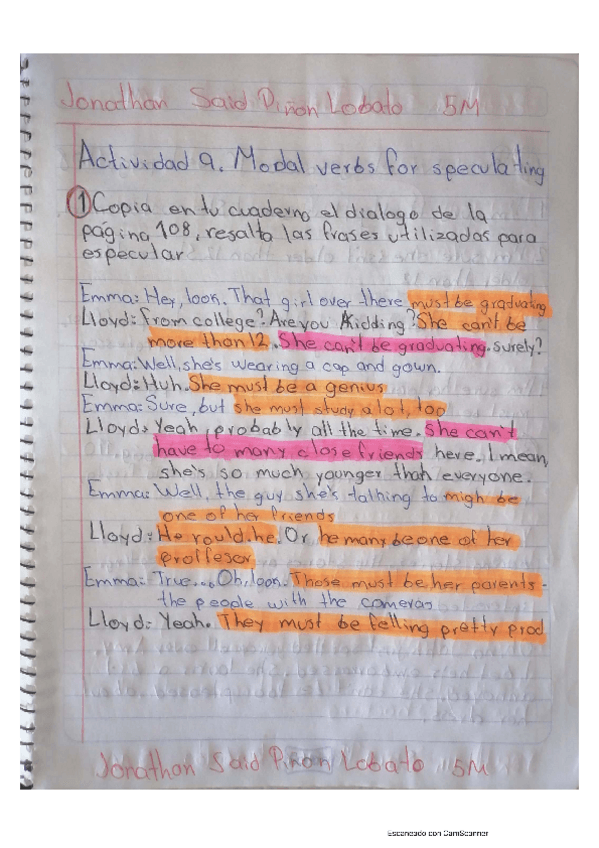 Jonathan Said Piñon Lobato 5M
Actividad 9. Modal verbs for speculating
①Copia en tu cuaderno el dialogo de la
pagina 108, resalta las frases utilizadas para
especular
Emma: Hey, look. That girl over there must be graduating
Lloyd: from college? Are you Kidding? She can't be
more than 12. She can't be graduating. surely?
Emma: Well, she's wearing a cap and gown.
Lloyd: Huh. She must be a genius
Emma: Sure, but she must study a lot, too
Lloyd: Yeah, probably all the time. She can't
have to many close friends here. I mean,
she's so much younger than everyone.
Emma: Well, the guy she's talhing to migh be
one of her friends
Lloyd: He rould he. Or, he many be one of her
proffesor
Emma: True... Oh, look. Those must be her parents -
the people with the cameras
Lloyd: Yeah. They must be felling pretty prod
Jonathan Said Piñon Lobato 5M
Escaneado con CamScanner